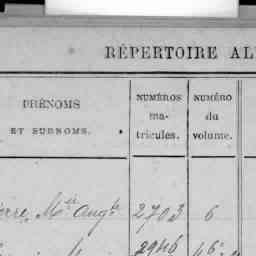 RÉPERTOIRE AL
PRÉNOMS
ET SURNOMS.
NUMÉROS
ma-
tricules.
NUMÉRO
du
volume.
erre, Mie Augte 2703 6
2946